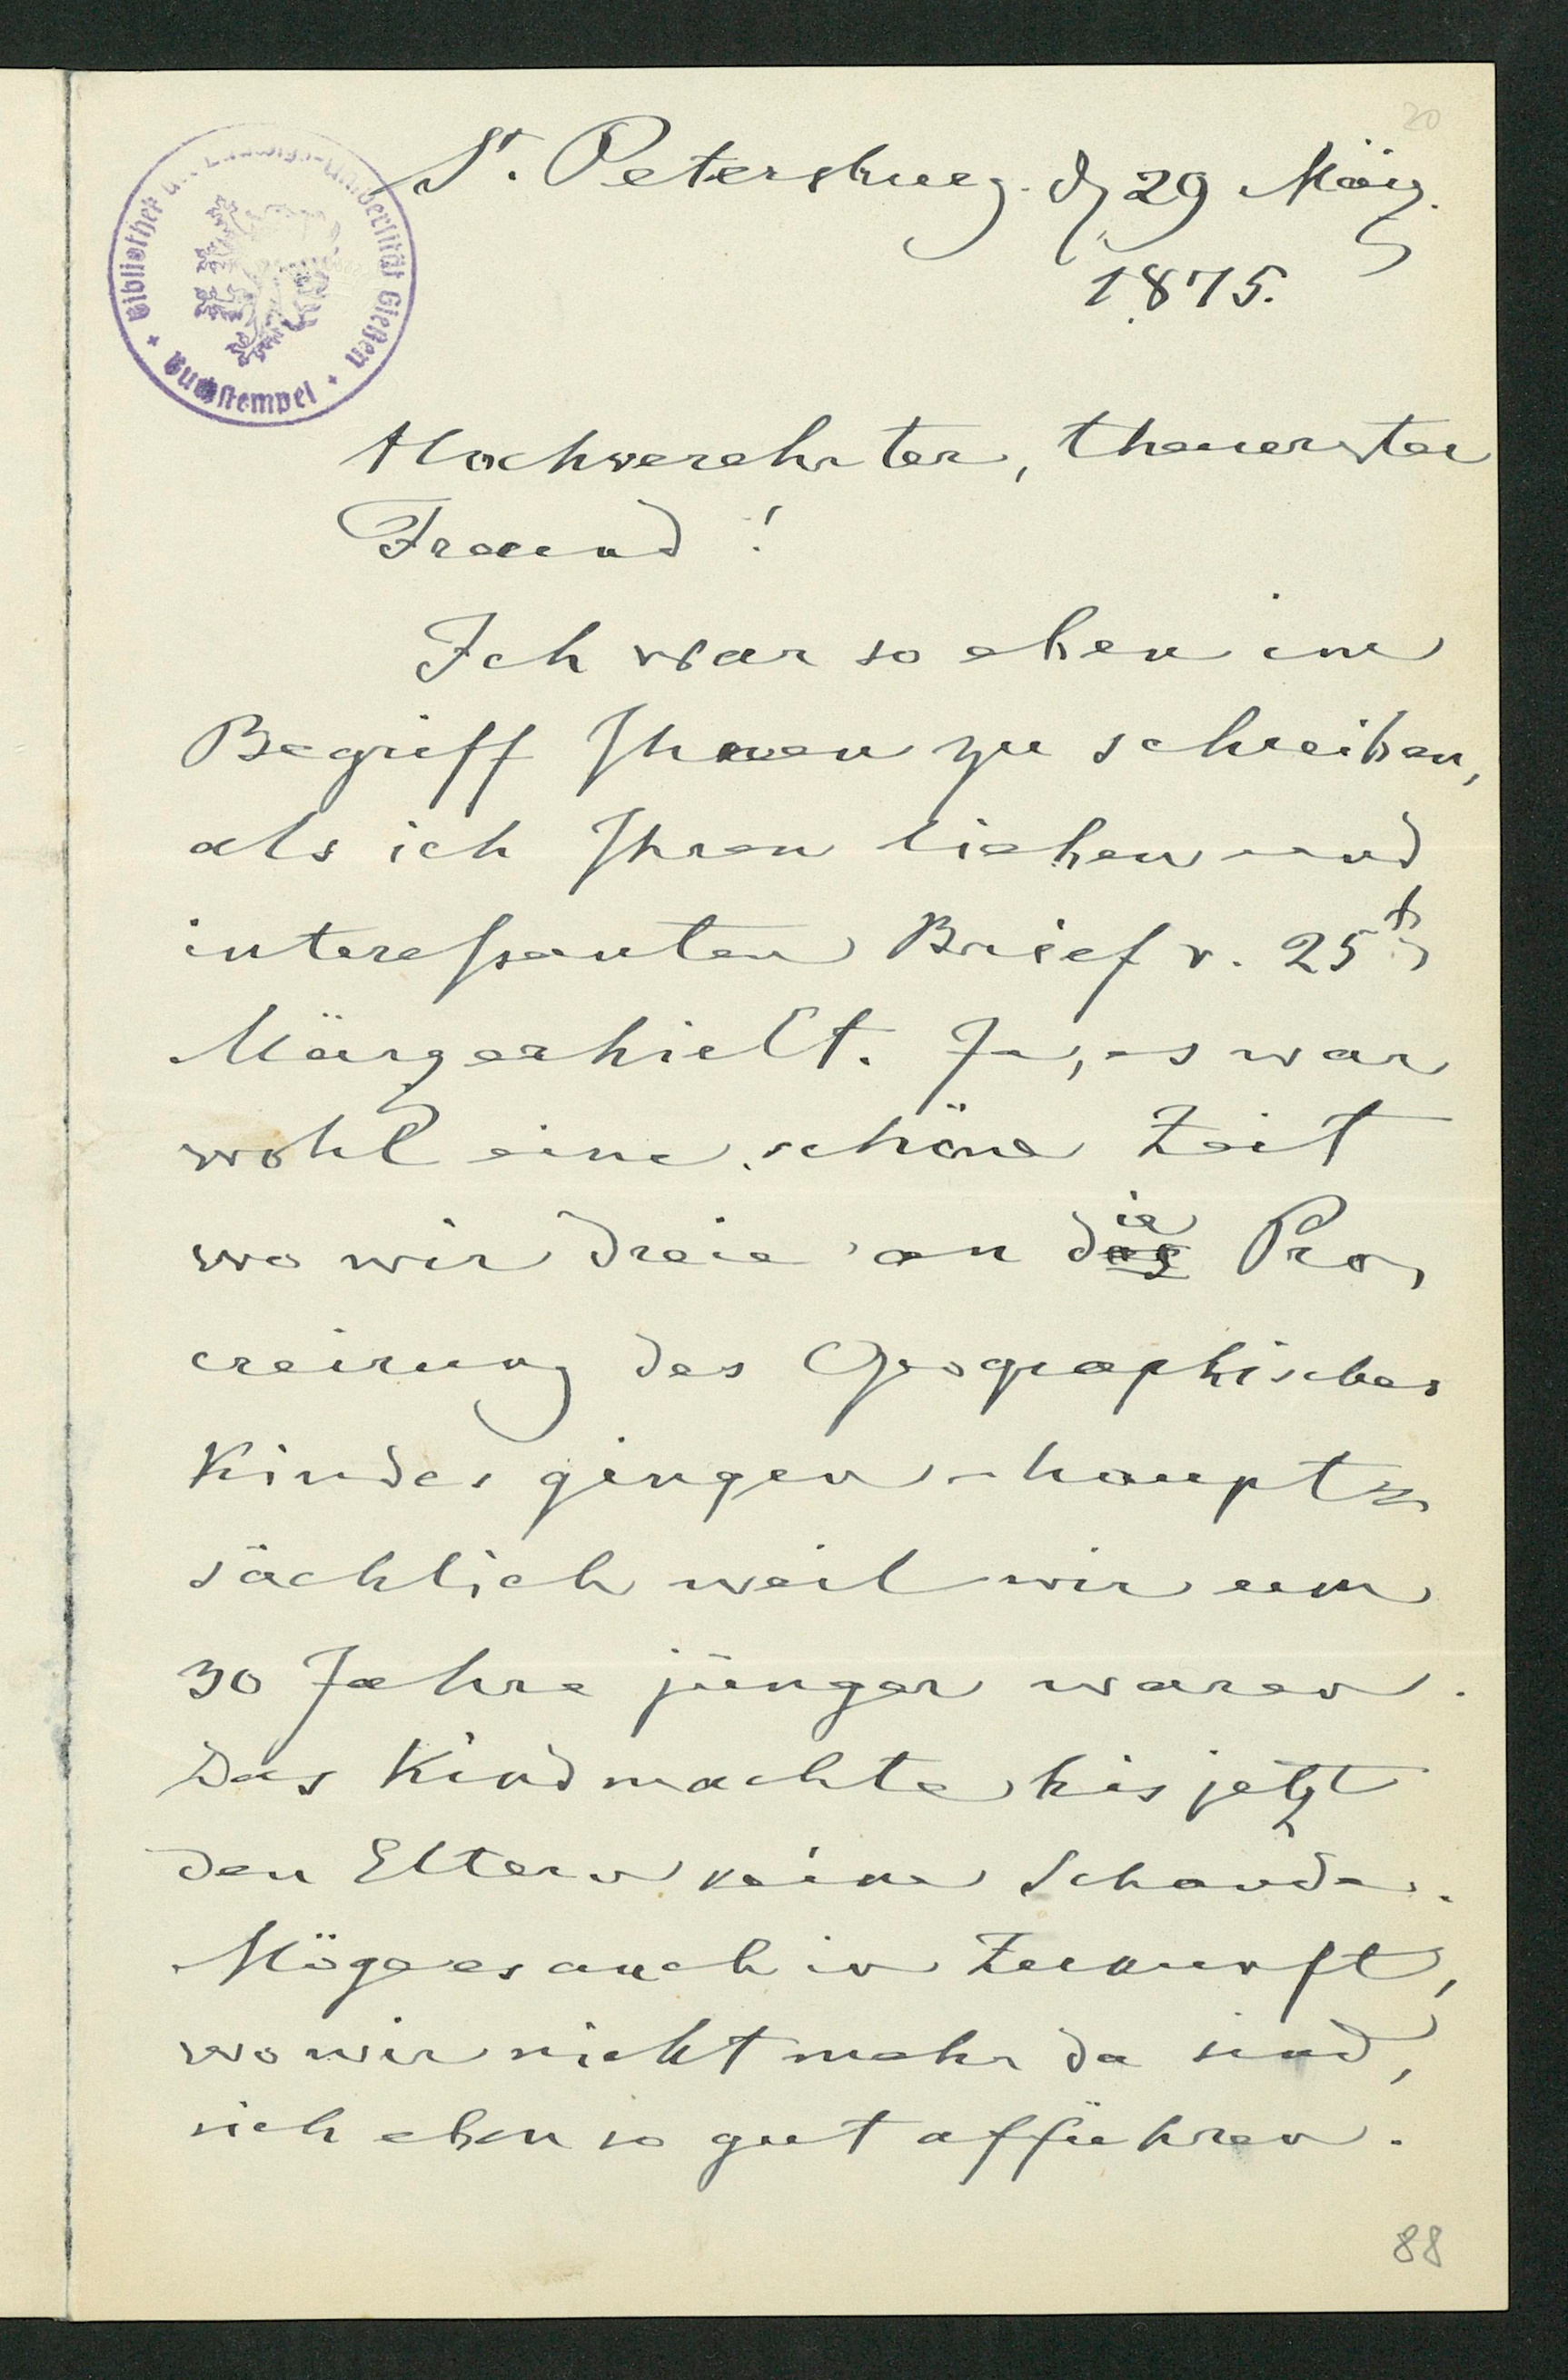 20
St. Petersburg. d. 29 März.
1875.
Bibliothek der Ludwigs-Universität Gießen
Buchstempel
Hochverehrter, theuerster
Freund!
Ich war so eben im
Begriff Ihnen zu schreiben,
als ich Ihren lieben und
interessanten Brief v. 25t.
März erhielt. Ja, es war
wohl eine schöne Zeit
wo wir dreie an die Pro-
creirung des Geographischen
Kindes gingen - haupt-
sächlich weil wir um
30 Jahre jünger waren.
Das Kind machte bis jetzt
den Eltern keine Schande.
Möge es auch in Zukunft,
wo wir nicht mehr da sind,
sich eben so gut afführen.
88